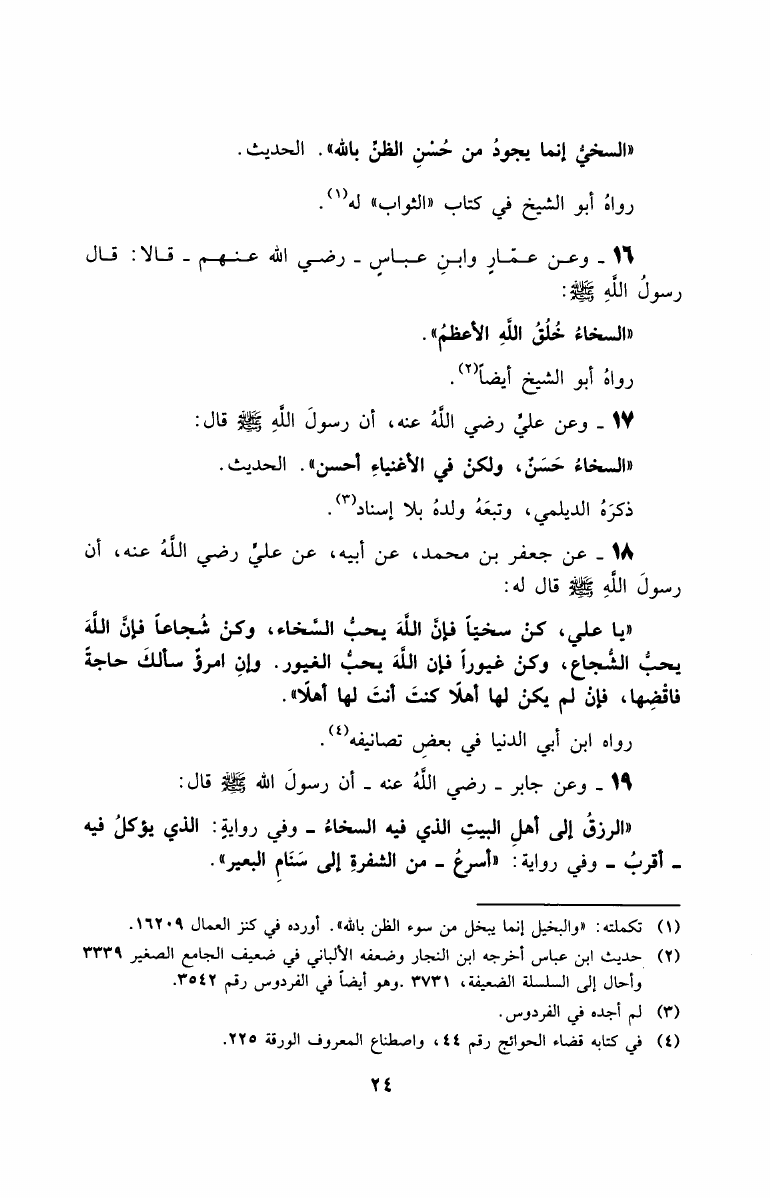 «السخيُّ إنما يجودُ من حُسْنِ الظنِّ بالله». الحديث.
رواهُ أبو الشيخ في كتاب «الثواب» له(١).
١٦ ـ وعن عمّارٍ وابنِ عباسٍ ـ رضي الله عنهم ـ قالا: قال
رسولُ اللَّهِ ﷺ:
«السخاءُ خُلُقُ اللَّهِ الأعظمُ».
رواهُ أبو الشيخ أيضاً(٢).
١٧ ـ وعن عليٍّ رضي اللَّهُ عنه، أن رسولَ اللَّهِ ﷺ قال:
«السخاءُ حَسَنٌ، ولكنْ في الأغنياءِ أحسن». الحديث.
ذكرَهُ الديلمي، وتبعَهُ ولدهُ بلا إسناد(٣).
١٨ ـ عن جعفر بن محمد، عن أبيه، عن عليٍّ رضي اللَّهُ عنه، أن
رسولَ اللَّهِ ﷺ قال له:
«يا علي، كنْ سخيّاً فإنَّ اللَّهَ يحبُّ السَّخاء، وكنْ شُجاعاً فإنَّ اللَّهَ
يحبُّ الشُّجاع، وكنْ غيوراً فإن اللَّهَ يحبُّ الغيور. وإنِ امرؤٌ سألكَ حاجةً
فاقْضِها، فإنْ لم يكنْ لها أهلًا كنتَ أنتَ لها أهلًا».
رواه ابن أبي الدنيا في بعضِ تصانيفه(٤).
١٩ ـ وعن جابر ـ رضي اللَّهُ عنه ـ أن رسولَ الله ﷺ قال:
«الرزقُ إلى أهلِ البيتِ الذي فيه السخاءُ ـ وفي روايةٍ: الذي يؤكلُ فيه
ـ أقربُ ـ وفي رواية: «أسرعُ ـ من الشفرةِ إلى سَنَامِ البعير».
(١) تكملته: «والبخيل إنما يبخل من سوء الظن بالله». أورده في كنز العمال ١٦٢٠٩.
(٢) حديث ابن عباس أخرجه ابن النجار وضعفه الألباني في ضعيف الجامع الصغير ٣٣٣٩
وأحال إلى السلسلة الضعيفة، ٣٧٣١ .وهو أيضاً في الفردوس رقم ٣٥٤٢.
(٣) لم أجده في الفردوس.
(٤) في كتابه قضاء الحوائج رقم ٤٤، واصطناع المعروف الورقة ٢٢٥.
٢٤